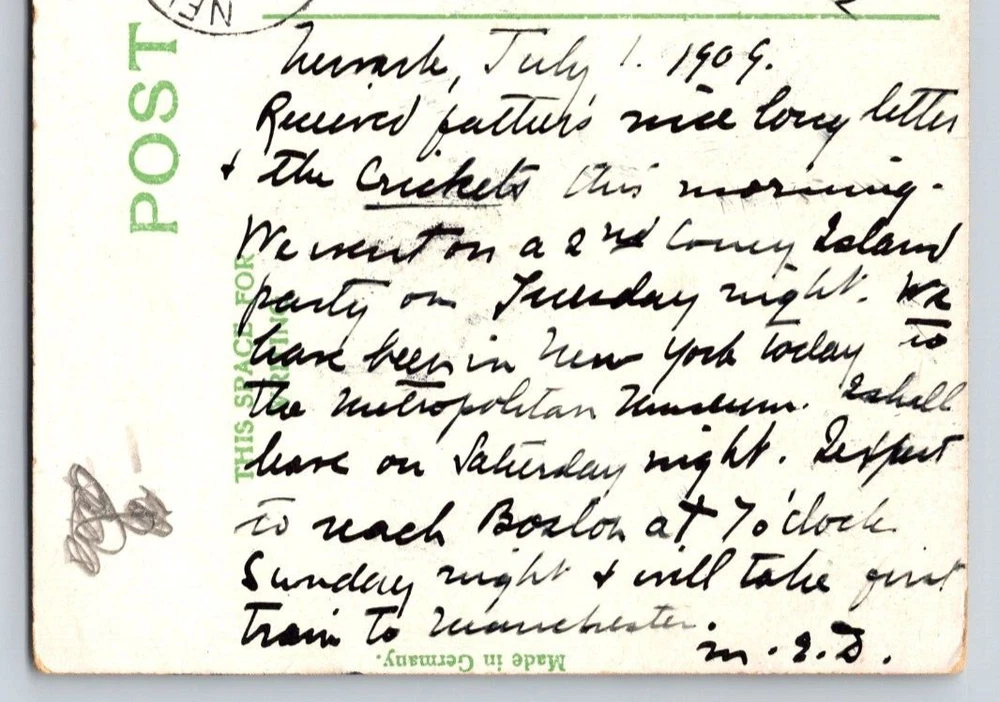 Newark, July 1. 1909.
Received father's nice long letter
& the Crickets this morning.
We went on a 2nd Coney Island
party on Tuesday night. We
have been in New York today to
the Metropolitan Museum. I shall
leave on Saturday night. I expect
to reach Boston at 7 o'clock
Sunday night & will take first
train to Manchester.
M. E. D.
POST
THIS SPACE FOR
Made in Germany.